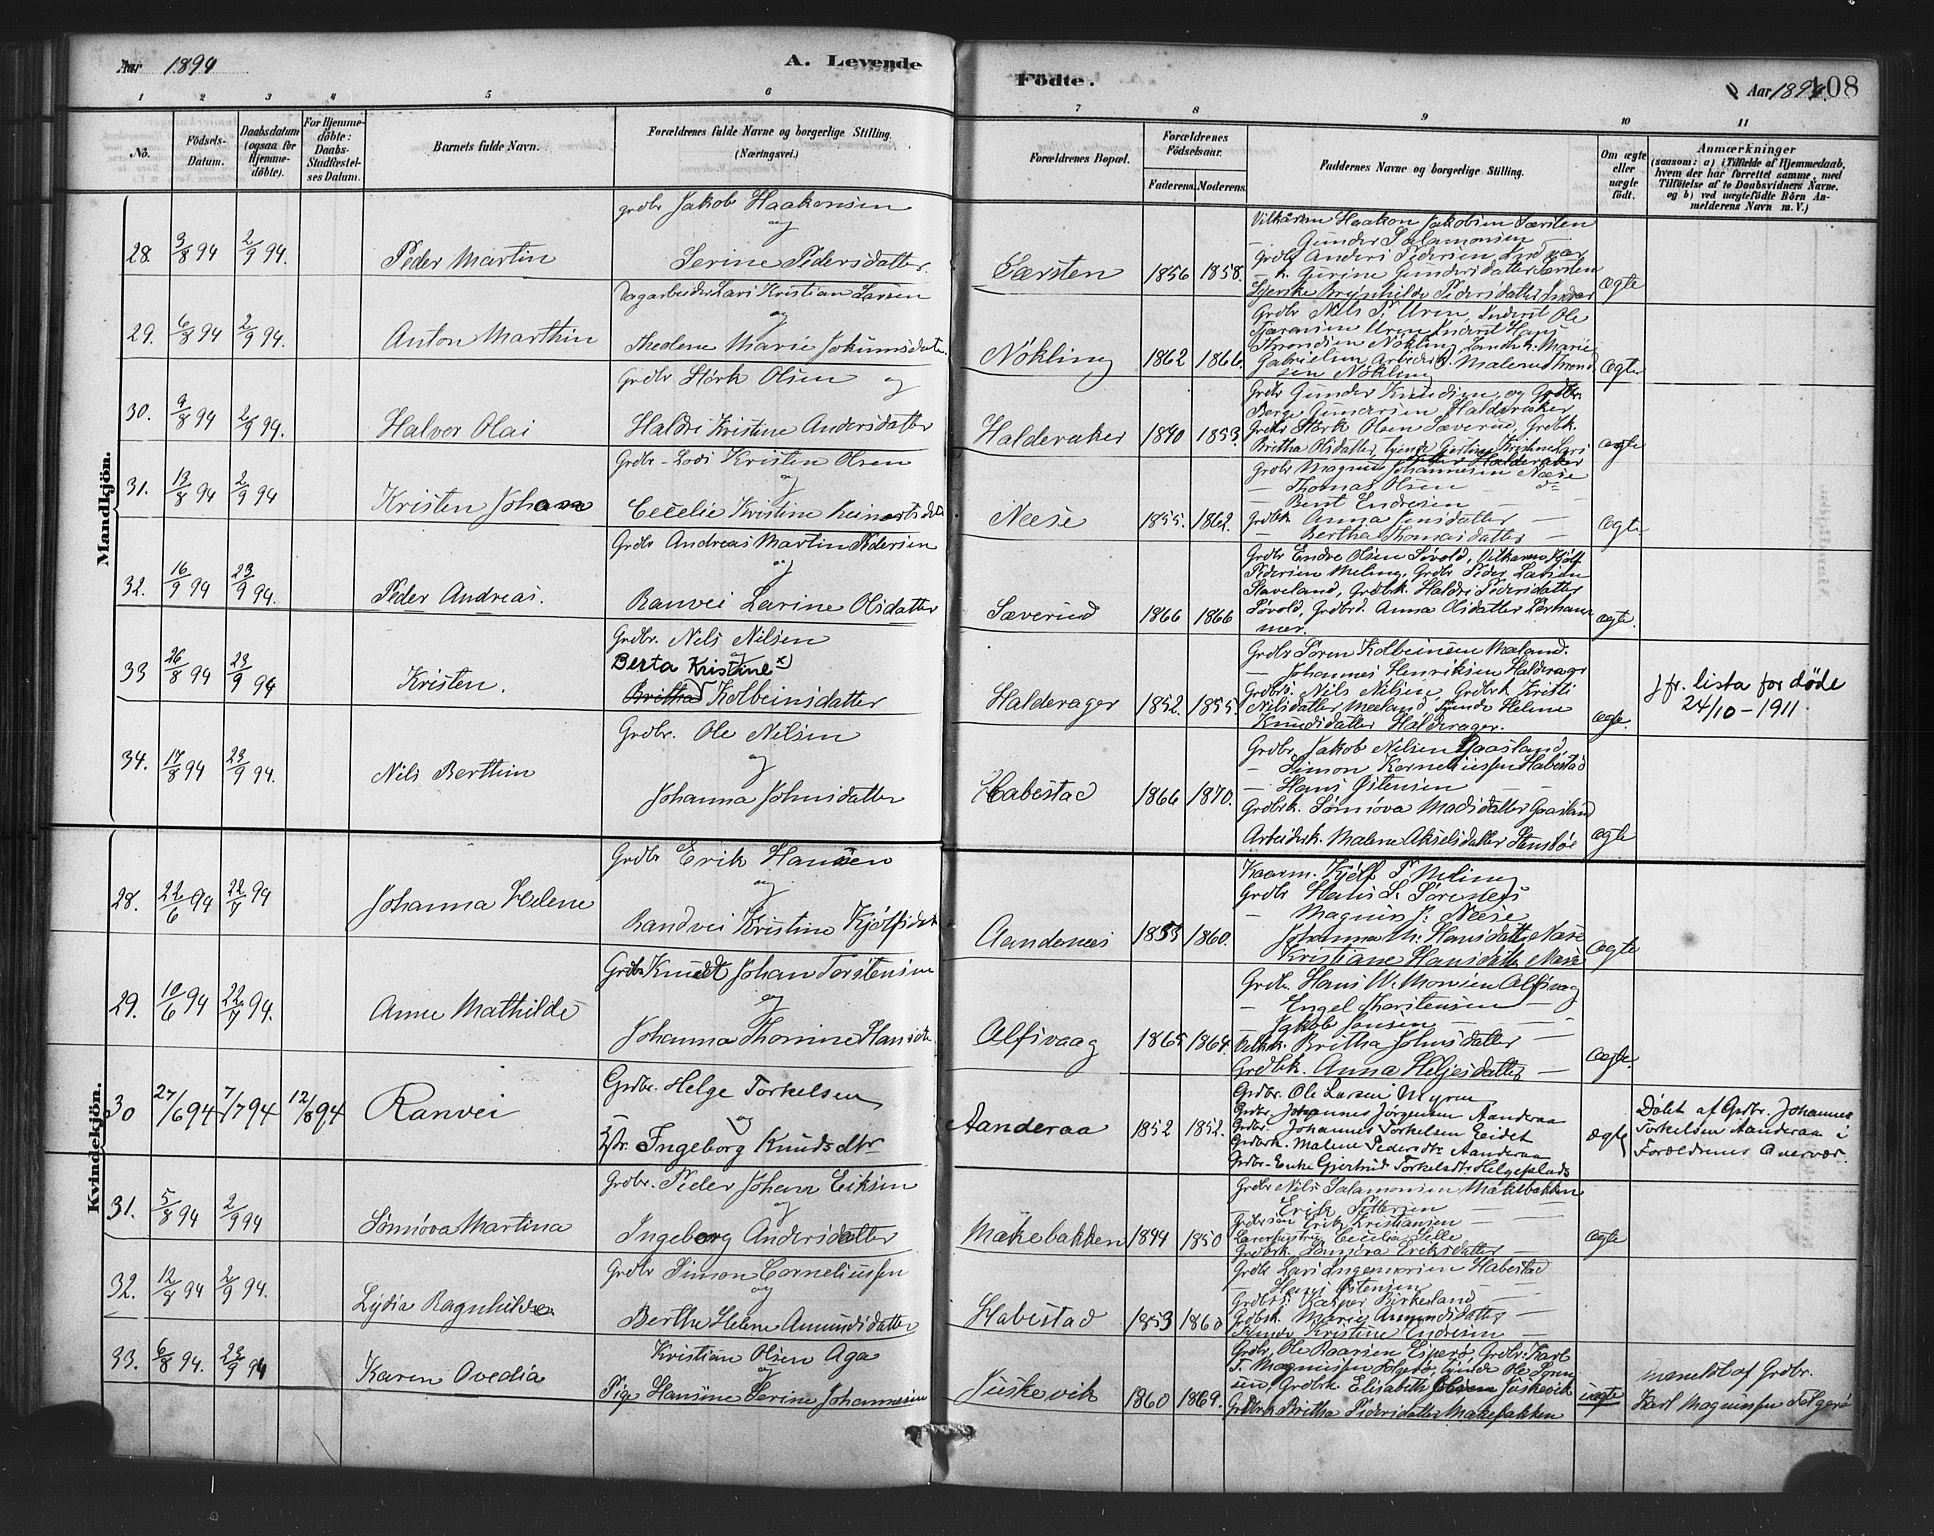 Aar 1894
A. Levende
Födte.
Aar 1894.
108
1 2 3 4 5 6 7 8 9 10 11
No.
Födsels-Datum.
Daabsdatum (ogsaa for Hjemme-döbte).
For Hjemme-döbte: Daabs-Stadfæstel-ses Datum.
Barnets fulde Navn.
Forældrenes fulde Navne og borgerlige Stilling. (Næringsvei.)
Forældrenes Bopæl.
Forældrenes Födselsaar.
Faderens. Moderens.
Faddernes Navne og borgerlige Stilling.
Om ægte eller uægte födt.
Anmærkninger
(saasom: a) i Tilfælde af Hjemmedaab, hvem der har forrettet samme, med Tilföielse af to Daabsvidners Navne, og b) ved uægtefödte Börn An-melderens Navn m. V.)
Mandkjön.
28. 3/8 94 2/9 94. Peder Martin
grdbr Jakob Haakonsen
og
Serine Pedersdatter.
Særsten 1856 1858.
Haakon Jakobsen Særsten
Gunder Salamonsen
Grdbr Anders Pedersen
Gurine Gundersdatter Særsten
Brynhilde Pedersdatter
ægte
29. 6/8 94 2/9 94. Anton Marthin
Dagarbeider Lars Kristian Larsen
og
Theolene Marie
Nökling 1862 1866.
Grdbr Nils P. Uren, Inderst Ole
Uren, Inderst Hans
Nökling, Marie
Malene
Nökling
ægte
30. 9/8 94 2/9 94. Halvor Olai
Grdbr Störk Olsen og
Haldri Kristine Andersdatter
Halderaker 1840 1853.
Grdbr Gunder Knudsen og Grdbr.
Börge Gundersen Halderaker
Grdbr Störk Olsen Sæverud, Grdbrk.
Britha Olsdatter
Halderaker
ægte
31. 13/8 94 2/9 94 Kristen Johan
Grdbr-Lods Kristen Olsen
og
Cecelie Kristine
Næse 1855. 1862.
Grdbr Magnus Johannesen Næse
— Thomas Olsen — do
— Bent Endresen —
Grdbk. Anna Jensdatter —
— Bertha Thomasdatter —
ægte
32. 16/9 94 23/9 94. Peder Andreas.
Grdbr Andreas Martin Pedersen
og
Ranvei Larine Olsdatter
Sæverud 1866 1866
Grdbr Endre Olsen Sövold, Kjölf
Pedersen Meling, Grdbr Peder Larsen
Staveland, Grdbrk. Haldri Pedersdatter
Sövold, Anna Olsdatter
ægte.
33 26/8 94 23/9 94 Kristen.
Grdbr. Nils Nilsen
og
Berta Kristine x)
Britha Kolbeinsdatter
Halderager 1852. 1855.
Grdbr Sören Kolbeinsen Mæland.
— Johannes Henriksen Halderager
Nils Nilsen, Grdbrk Kristi
Nilsdatter Mæland, Helene
Knudsdatter Halderager.
ægte.
jfr. lista for döde
24/10 - 1911.
34. 17/8 94 23/9 94. Nils Berthin
Grdbr. Ole Nilsen
og
Johanna Johnsdatter
Habestad 1866 1870.
Grdbr. Jakob Nilsen Gaasland
— Simon Korneliussen Habestad
— Hans Östensen — —
Grdbrk. Sönnöva Madsdatter Gaasland
Arbeidsk. Malene Akselsdatter Stensöe
ægte
Kvindekjön.
28. 22/6 94 22/7 94 Johanna Helene
Grdbr Erik Hansen
og
Randvei Kristine Kjölfsdatter
1853 1860.
Kaarm. Kjölf P. Meling
Grdbr Hans S. Sörenæs
— Magnus J. Næse
Johanna M. Hansdatter Næse
Kristiane Hansdatter Næse
ægte
29. 10/6 94 22/7 94. Anne Mathilde
Grdbr Knudt Johan Torstensen
og
Johanna Thomine Hansdtr
Alfsvaag 1865 1864.
Grdbr. Hans W. Monsen Alfsvaag
— Engel Thorstensen —
— Jakob Jansen — —
Britha Johnsdatter —
Grdbrk. Anna Heljesdatter —
ægte.
30 27/6 94 7/7 94 12/8 94 Ranvei
Grdbr. Helge Torkelsen
og
Hstr. Ingeborg Knudsdtr
Aanderaa 1852 1852.
Grdbr. Ole Larsen Myren
Grdbr. Johannes Jörgensen Aanderaa
Grdbr. Johannes Torkelsen Eidet
Grdbrk. Malene Pedersdtr Aanderaa
Grdbr-Enke Gjertrud Torkelsdtr Helgeplads
ægte
Döbt af Grdbr. Johannes
Torkelsen Aanderaa i
Forældrenes Overvær.
31. 5/8 94 2/9 94 Sönnöva Martina
Grdbr. Peder Johan Eriksen
og
Ingeborg Andersdatter
Mækebakken 1844 1850
Grdbr Nils Salamonsen Mækebakken
— Erik Pettersen —
Grdbrsön Erik Kristiansen —
Cecilia Selle
Grdbrk. Sönnöva Eriksdatter —
ægte
32. 12/8 94 2/9 94. Lydia Ragnhilda
Grdbr Simon Corneliussen
og
Berthe Helene Amundsdatter
Habestad 1853 1860
Grdbr Lars Ingemorsen Habestad
— Hans Östensen —
Kasper Birkeland —
Grdbrk. Marie Amundsdatter —
Kristine Endresen —
33. 6/8 94. 23/9 94 Karen Ovedia
Kristian Olsen Aga
og
Pige Hansine Serine Johannesen
Juskevik 1860 1869.
Grdbr. Ole Roarsen Esperö, Grdbr. Karl
T. Magnussen Folgerö,
Grdbrk Elisabeth Olsen Juskevik
Grdbrk Britha Pedersdatter Mækebakken
uægte
Anmeldt af Grdbr.
Karl Magnussen Folgerö